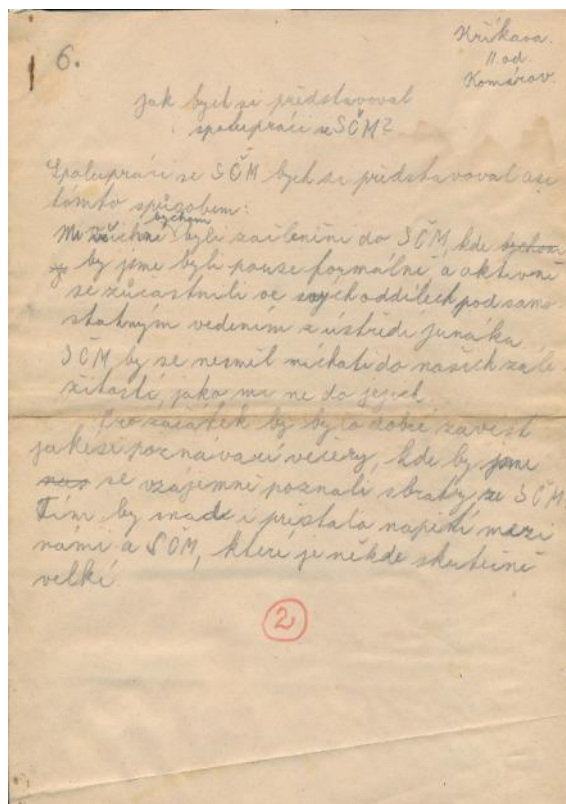 Křikava.
II. od.
Komárov.
6.
Jak bych si představoval
spolupráci se SČM?
Spolupráci se SČM bych si představoval asi
tomto spůzobem:
Mi všichni bychom byli začleněni do SČM, kde bychom
by jsme byli pouze formálně a aktivně
se zůčastnili ve svých oddílech pod samo-
statným vedením z ústředí Junáka.
SČM by se nesměl míchati do našich zále-
žitostí, jako mi ne do jejich.
Pro začátek by bylo dobré zavést
jakési poznávací večery, kde by jsme
se vzájemně poznali s bratry ze SČM.
Tím by snad i přestalo napětí mezi
námi a SČM, které je někde skutečně
velké.
2